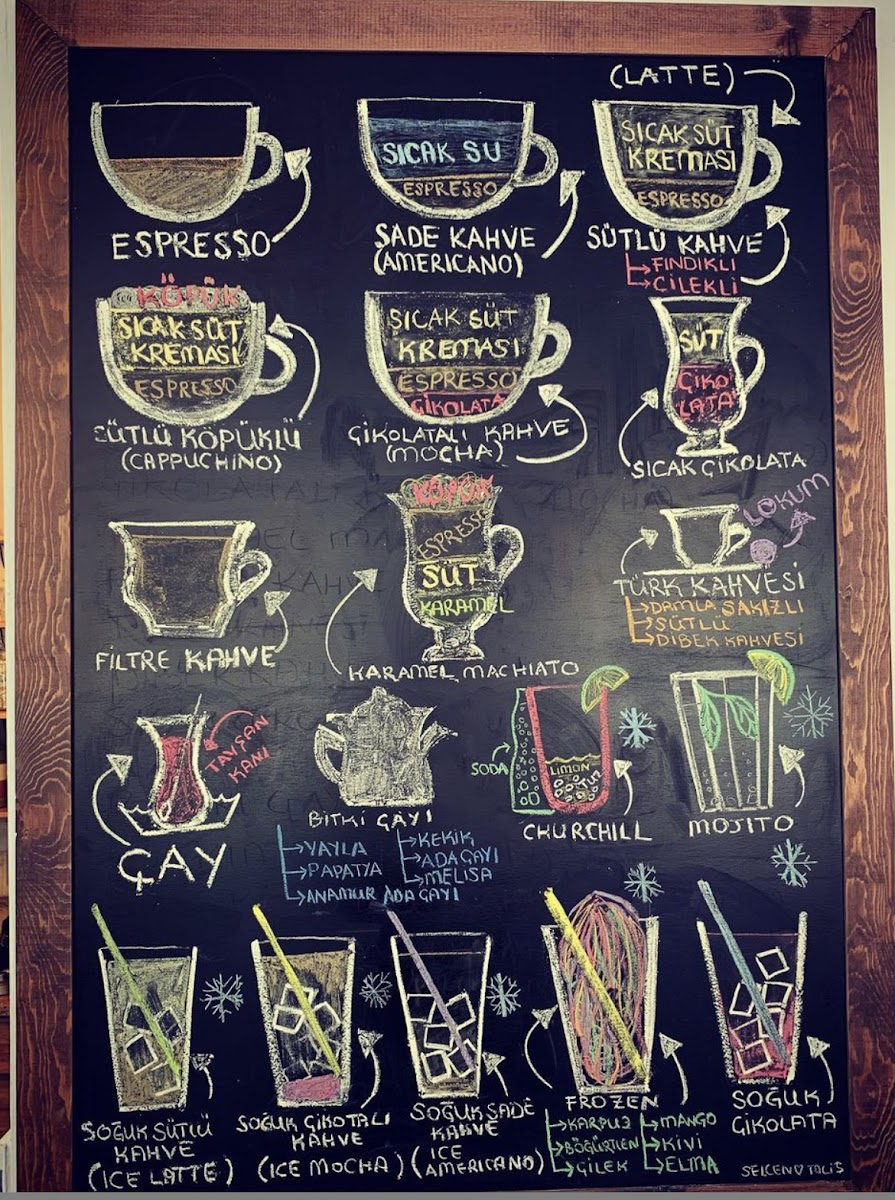 (LATTE)
ESPRESSO
SICAK SU
ESPRESSO
SADE KAHVE
(AMERICANO)
SICAK SÜT
KREMASI
ESPRESSO
SÜTLÜ KAHVE
FINDIKLI
ÇİLEKLİ
KÖPÜK
SICAK SÜT
KREMASI
ESPRESSO
SÜTLÜ KÖPÜKLÜ
(CAPPUCHINO)
SICAK SÜT
KREMASI
ESPRESSO
ÇİKOLATA
ÇİKOLATALI KAHVE
(MOCHA)
SÜT
ÇİKO
LATA
SICAK ÇİKOLATA
FİLTRE KAHVE
KÖPÜK
ESPRESSO
SÜT
KARAMEL
KARAMEL MACHIATO
LOKUM
TÜRK KAHVESİ
DAMLA SAKIZLI
SÜTLÜ
DİBEK KAHVESİ
TAVŞAN
KANI
ÇAY
BİTKİ ÇAYI
YAYLA
PAPATYA
ANAMUR ADAÇAYI
KEKİK
ADAÇAYI
MELİSA
SODA
LİMON
TUZ
CHURCHILL
MOJITO
SOĞUK SÜTLÜ
KAHVE
(ICE LATTE)
SOĞUK ÇİKOTALI
KAHVE
(ICE MOCHA)
SOĞUK SADE
KAHVE
(ICE
AMERICANO)
FROZEN
KARPUZ
BÖĞÜRTLEN
ÇİLEK
MANGO
KİVİ
ELMA
SOĞUK
ÇİKOLATA